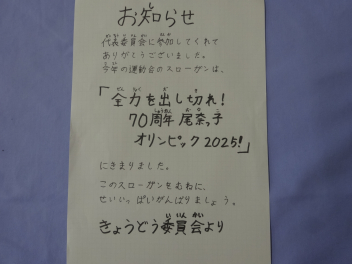 お知らせ
代表委員会に参加してくれて
ありがとうございました。
今年の運動会のスローガンは、
「全力を出し切れ!
70周年 尾奈っ子
オリンピック2025!」
にきまりました。
このスローガンをむねに、
せいいっぱいがんばりましょう。
きょうどう委員会より